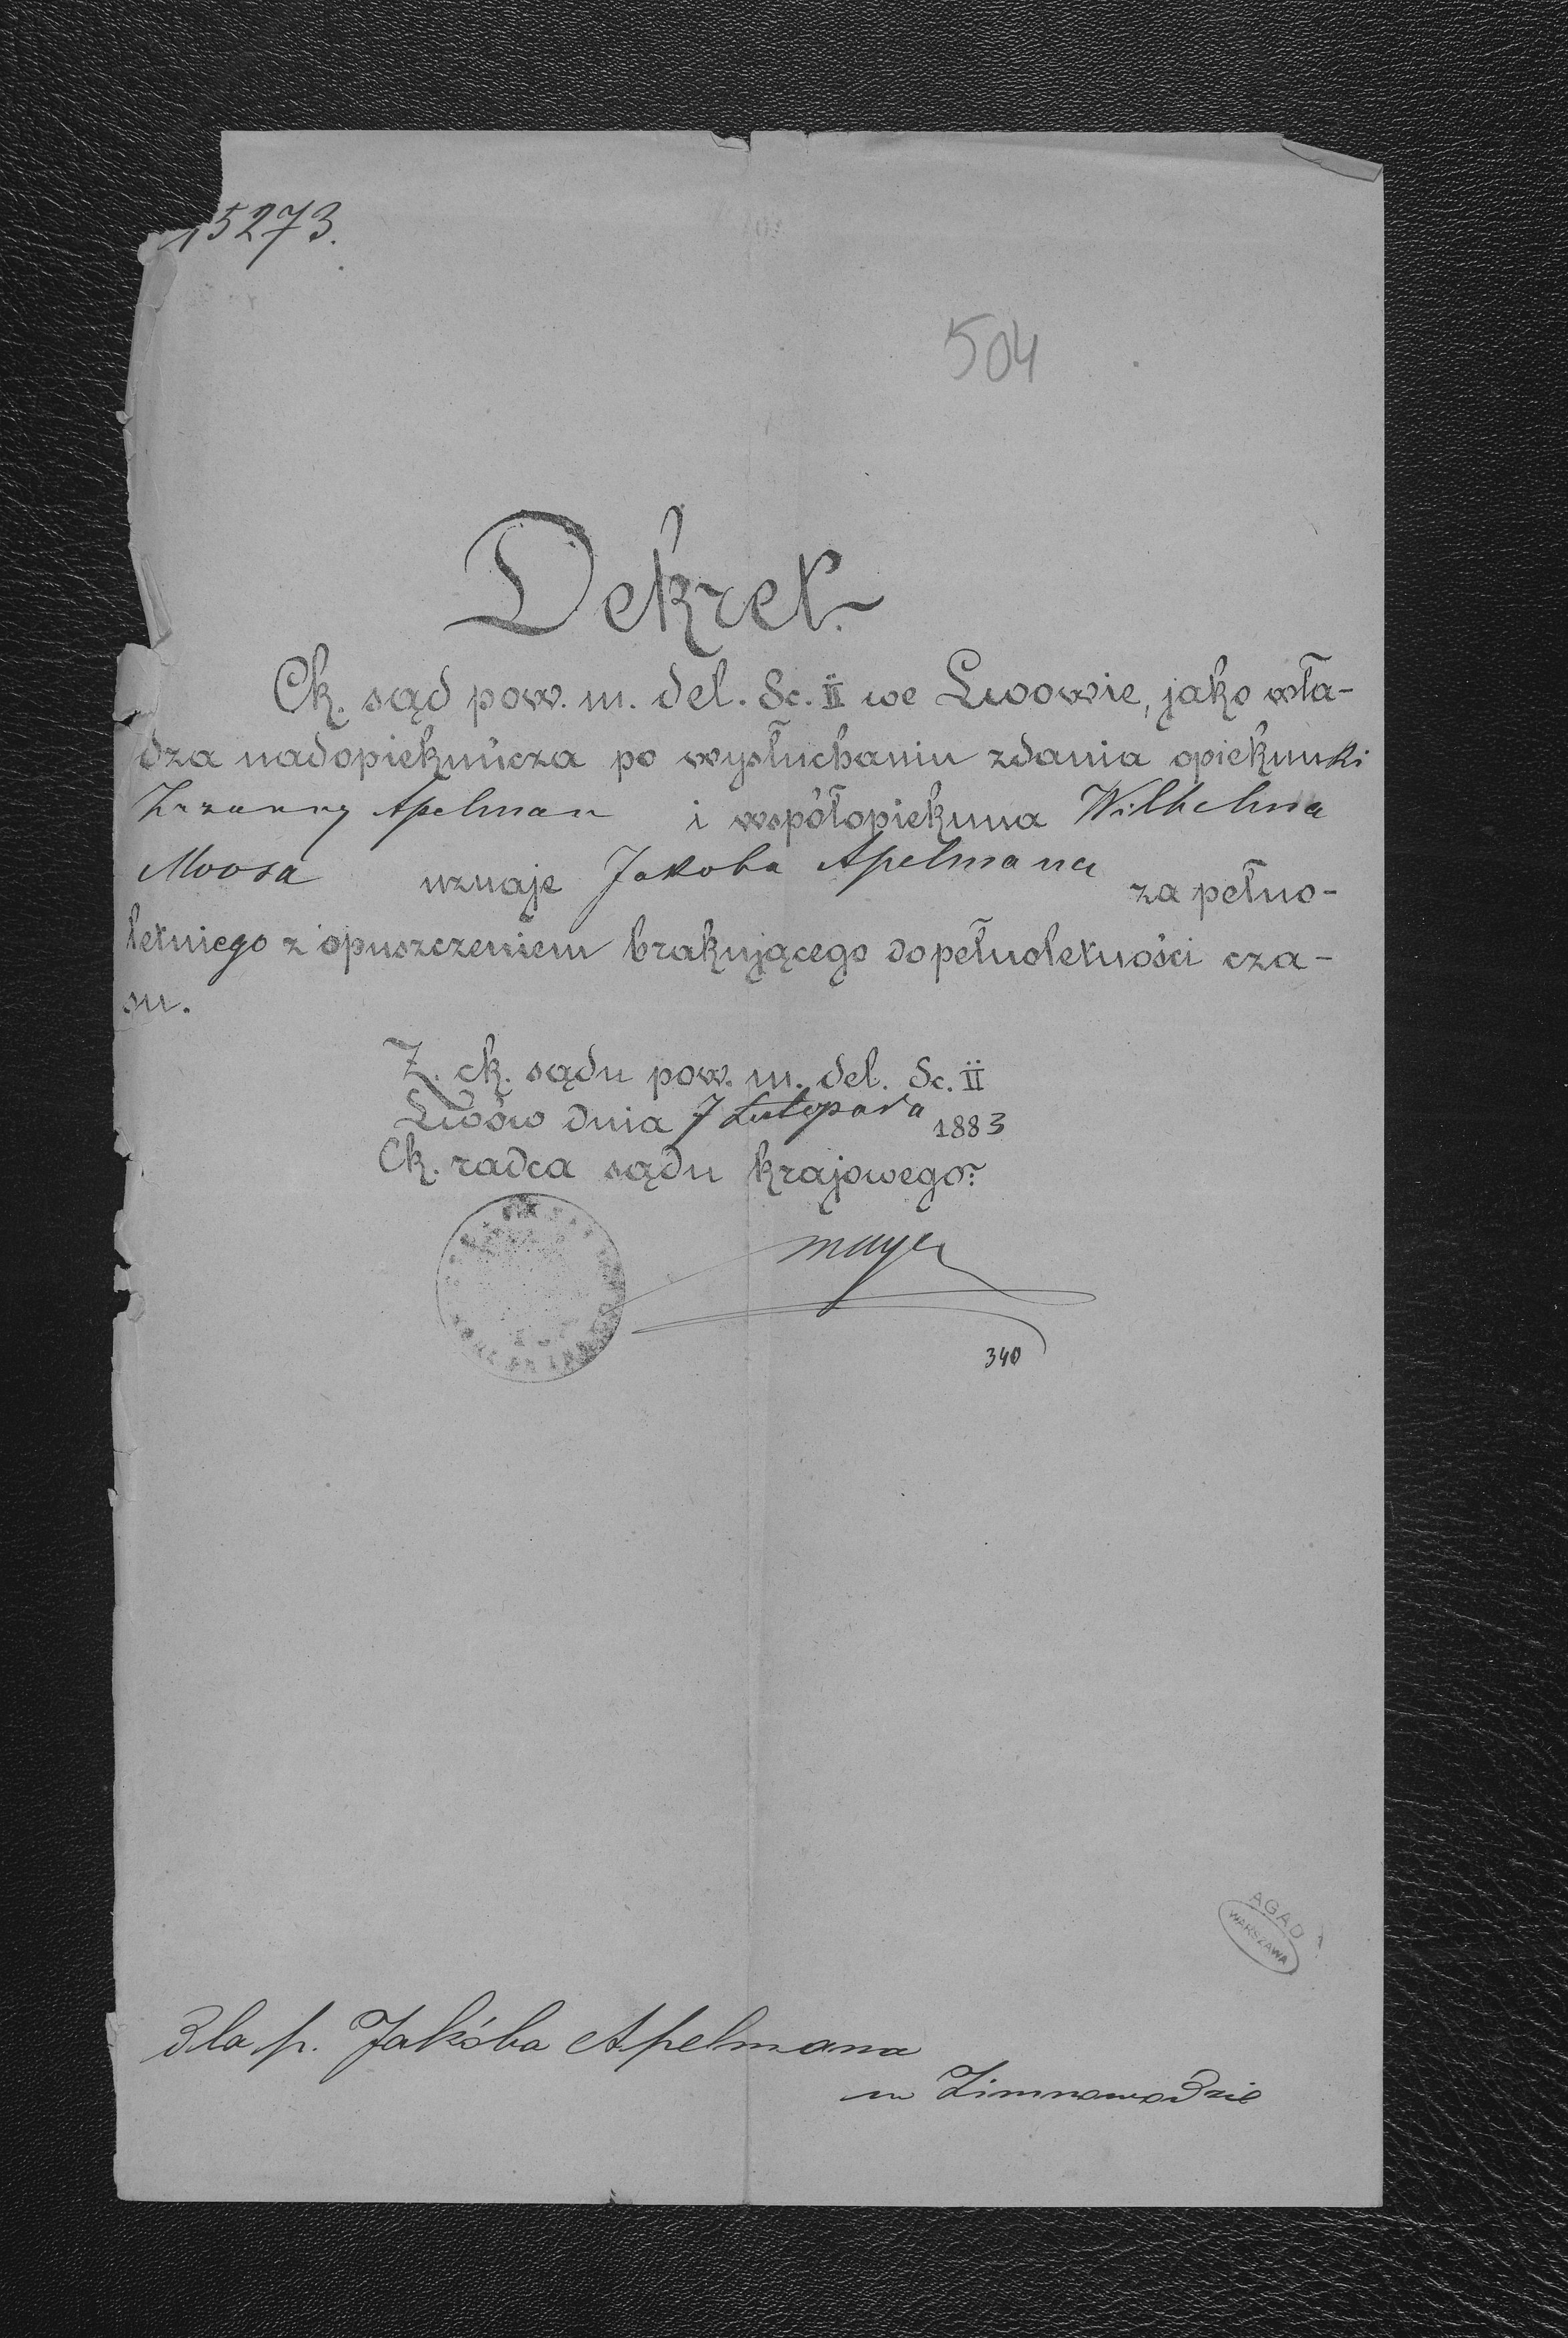 15273.
504
Dekret.
Ck. sąd pow. m. del. Sc. II we Lwowie, jako wła-
dza nadopiekuńcza po wysłuchaniu zdania opiekunki
Zuzanny Apelman i współopiekuna Wilhelma
Moosa uznaje Jakoba Apelmana za pełno-
letniego z opuszczeniem brakującego do pełnoletności cza-
su.
Z. ck. sądu pow. m. del. Sc. II
Lwów dnia 7 Listopada 1883
Ck. radca sądu krajowego:
Mayer
340
AGAD
WARSZAWA
Dla p. Jakóba Apelmana
w Zimnowodzie